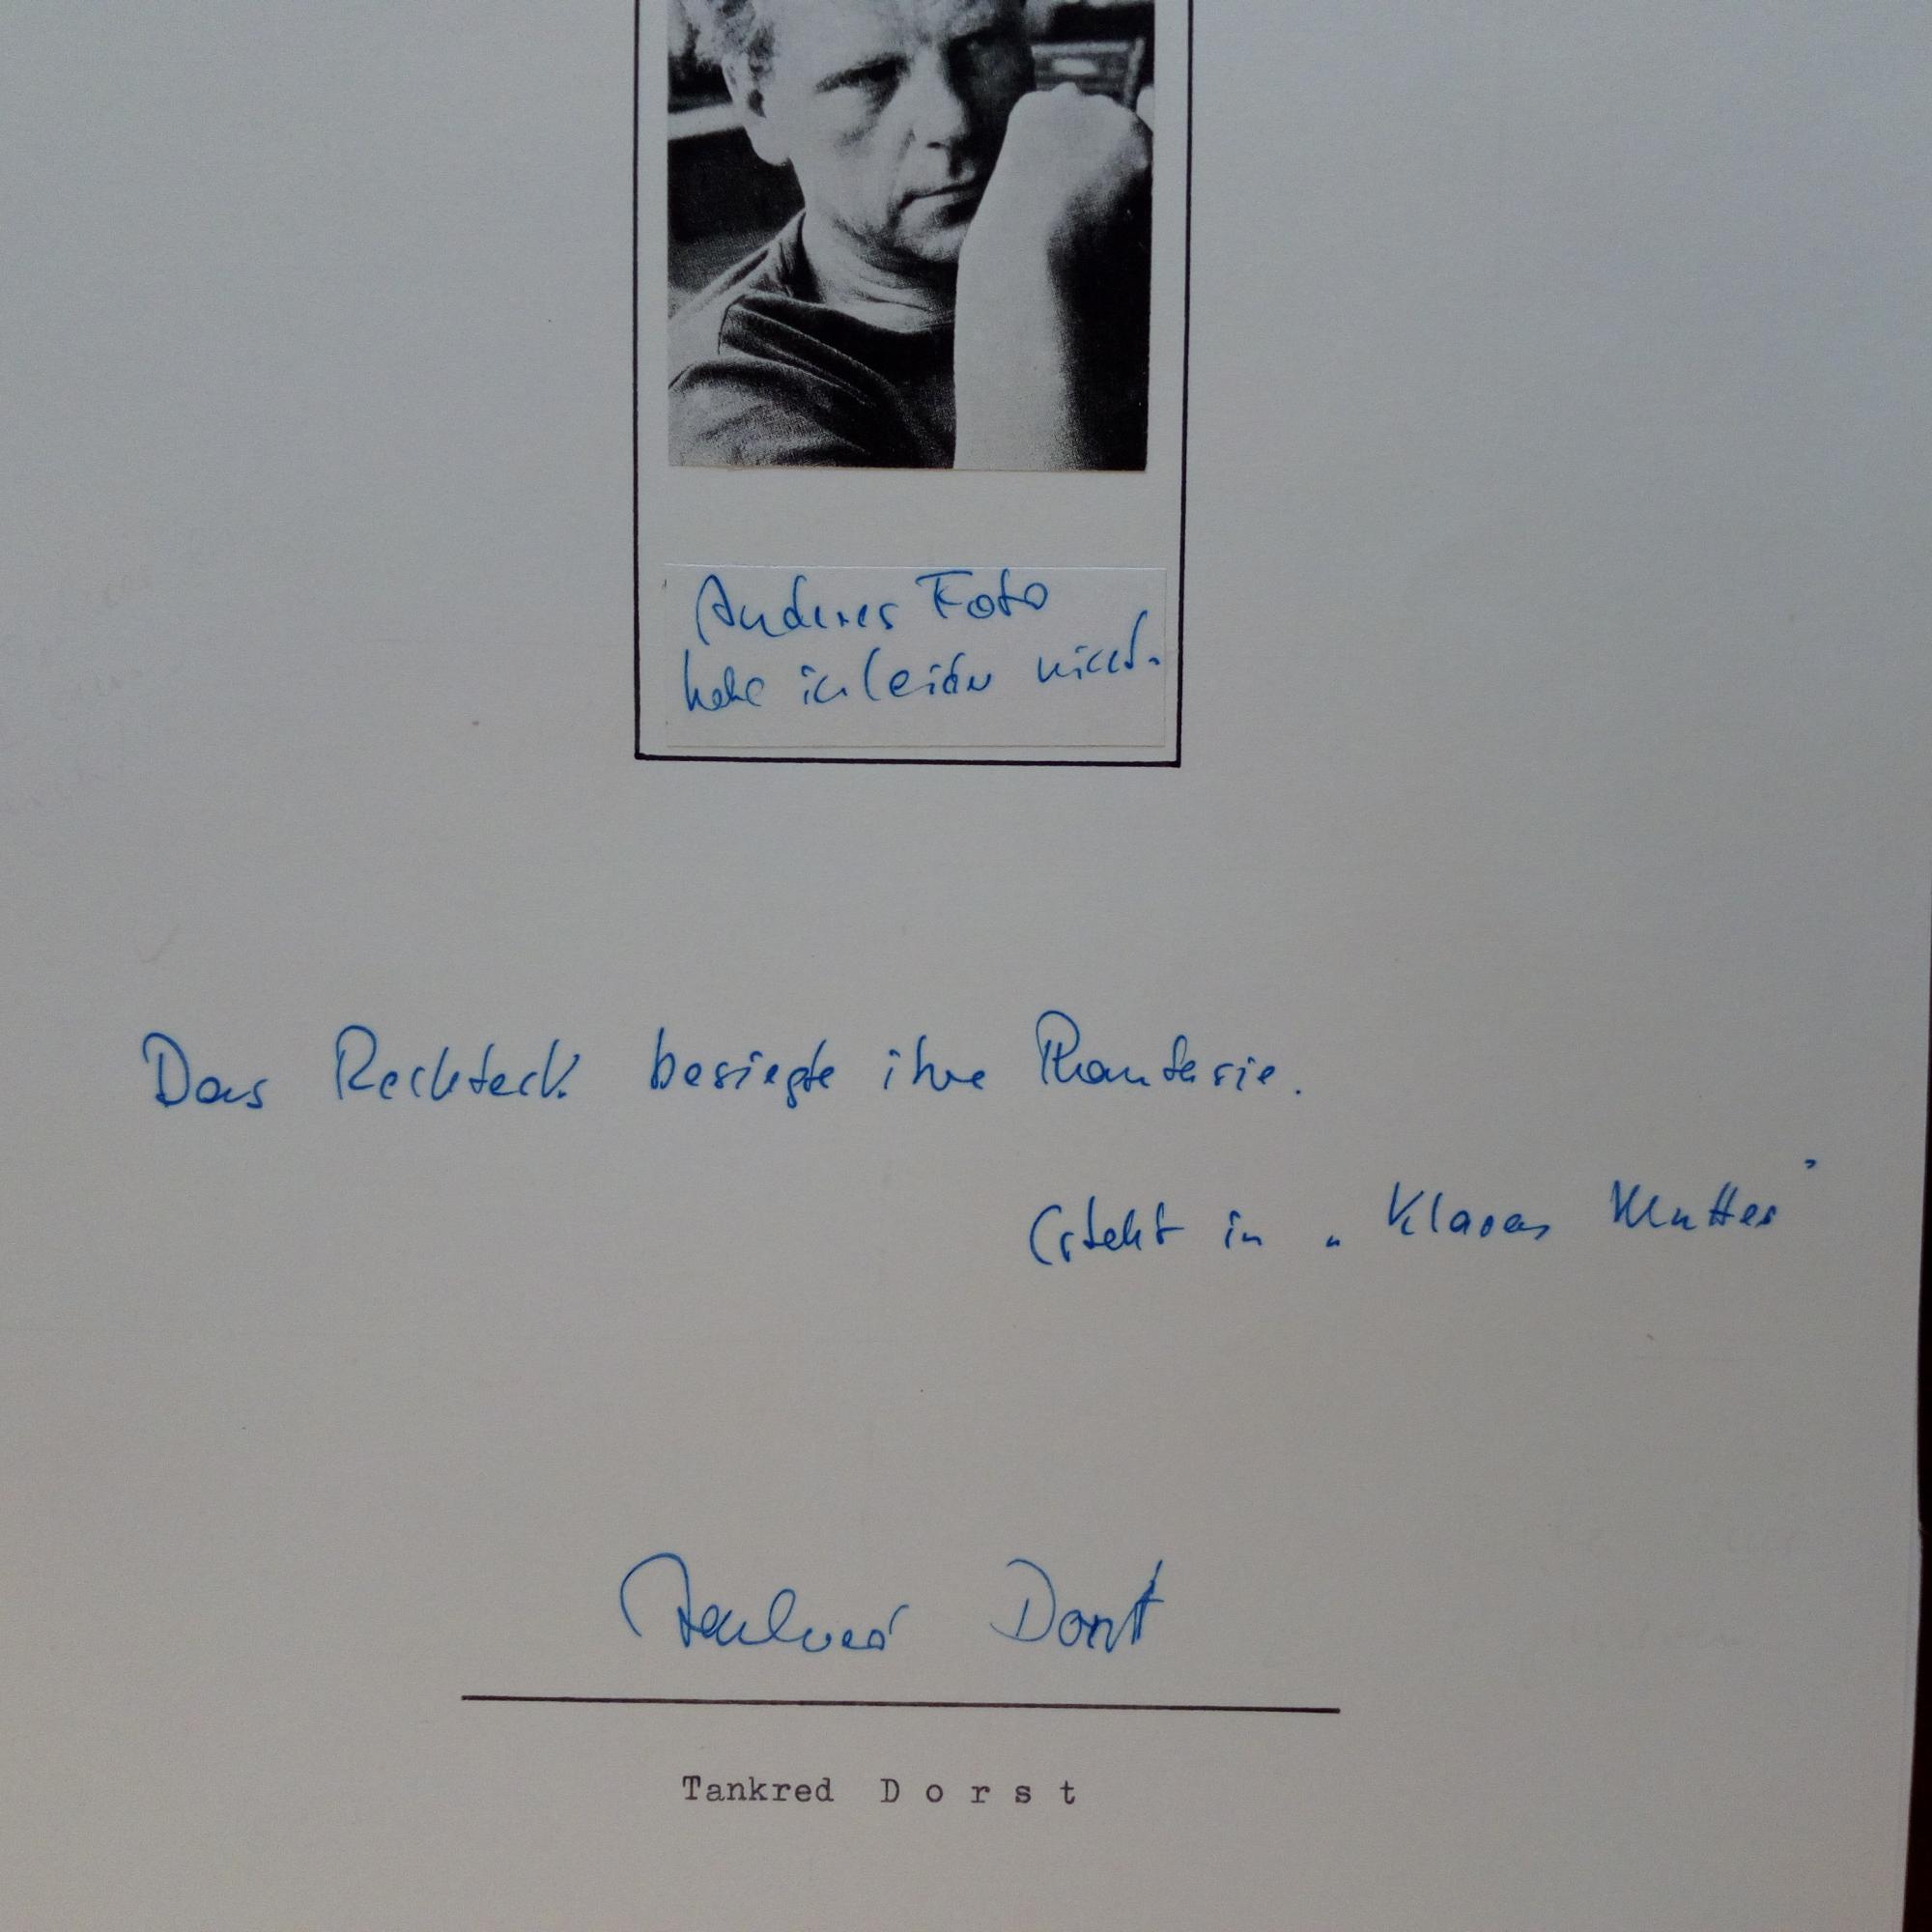 Anderes Foto
habe ich leider nicht.
Das Rechteck besiegte ihre Phantasie.
(steht in „Klaras Mutter”
Tankred Dorst
Tankred D o r s t